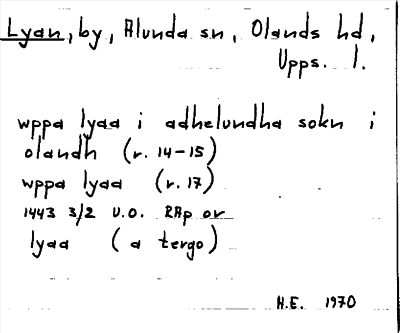 Lyan, by, Alunda sn, Olands hd,
Upps. l.
wppa lyaa i adhelundha sokn i
olandh (r. 14-15)
wppa lyaa (r. 17)
1443 3/2 U.O. RAp or
lyaa (a tergo)
H.E. 1970